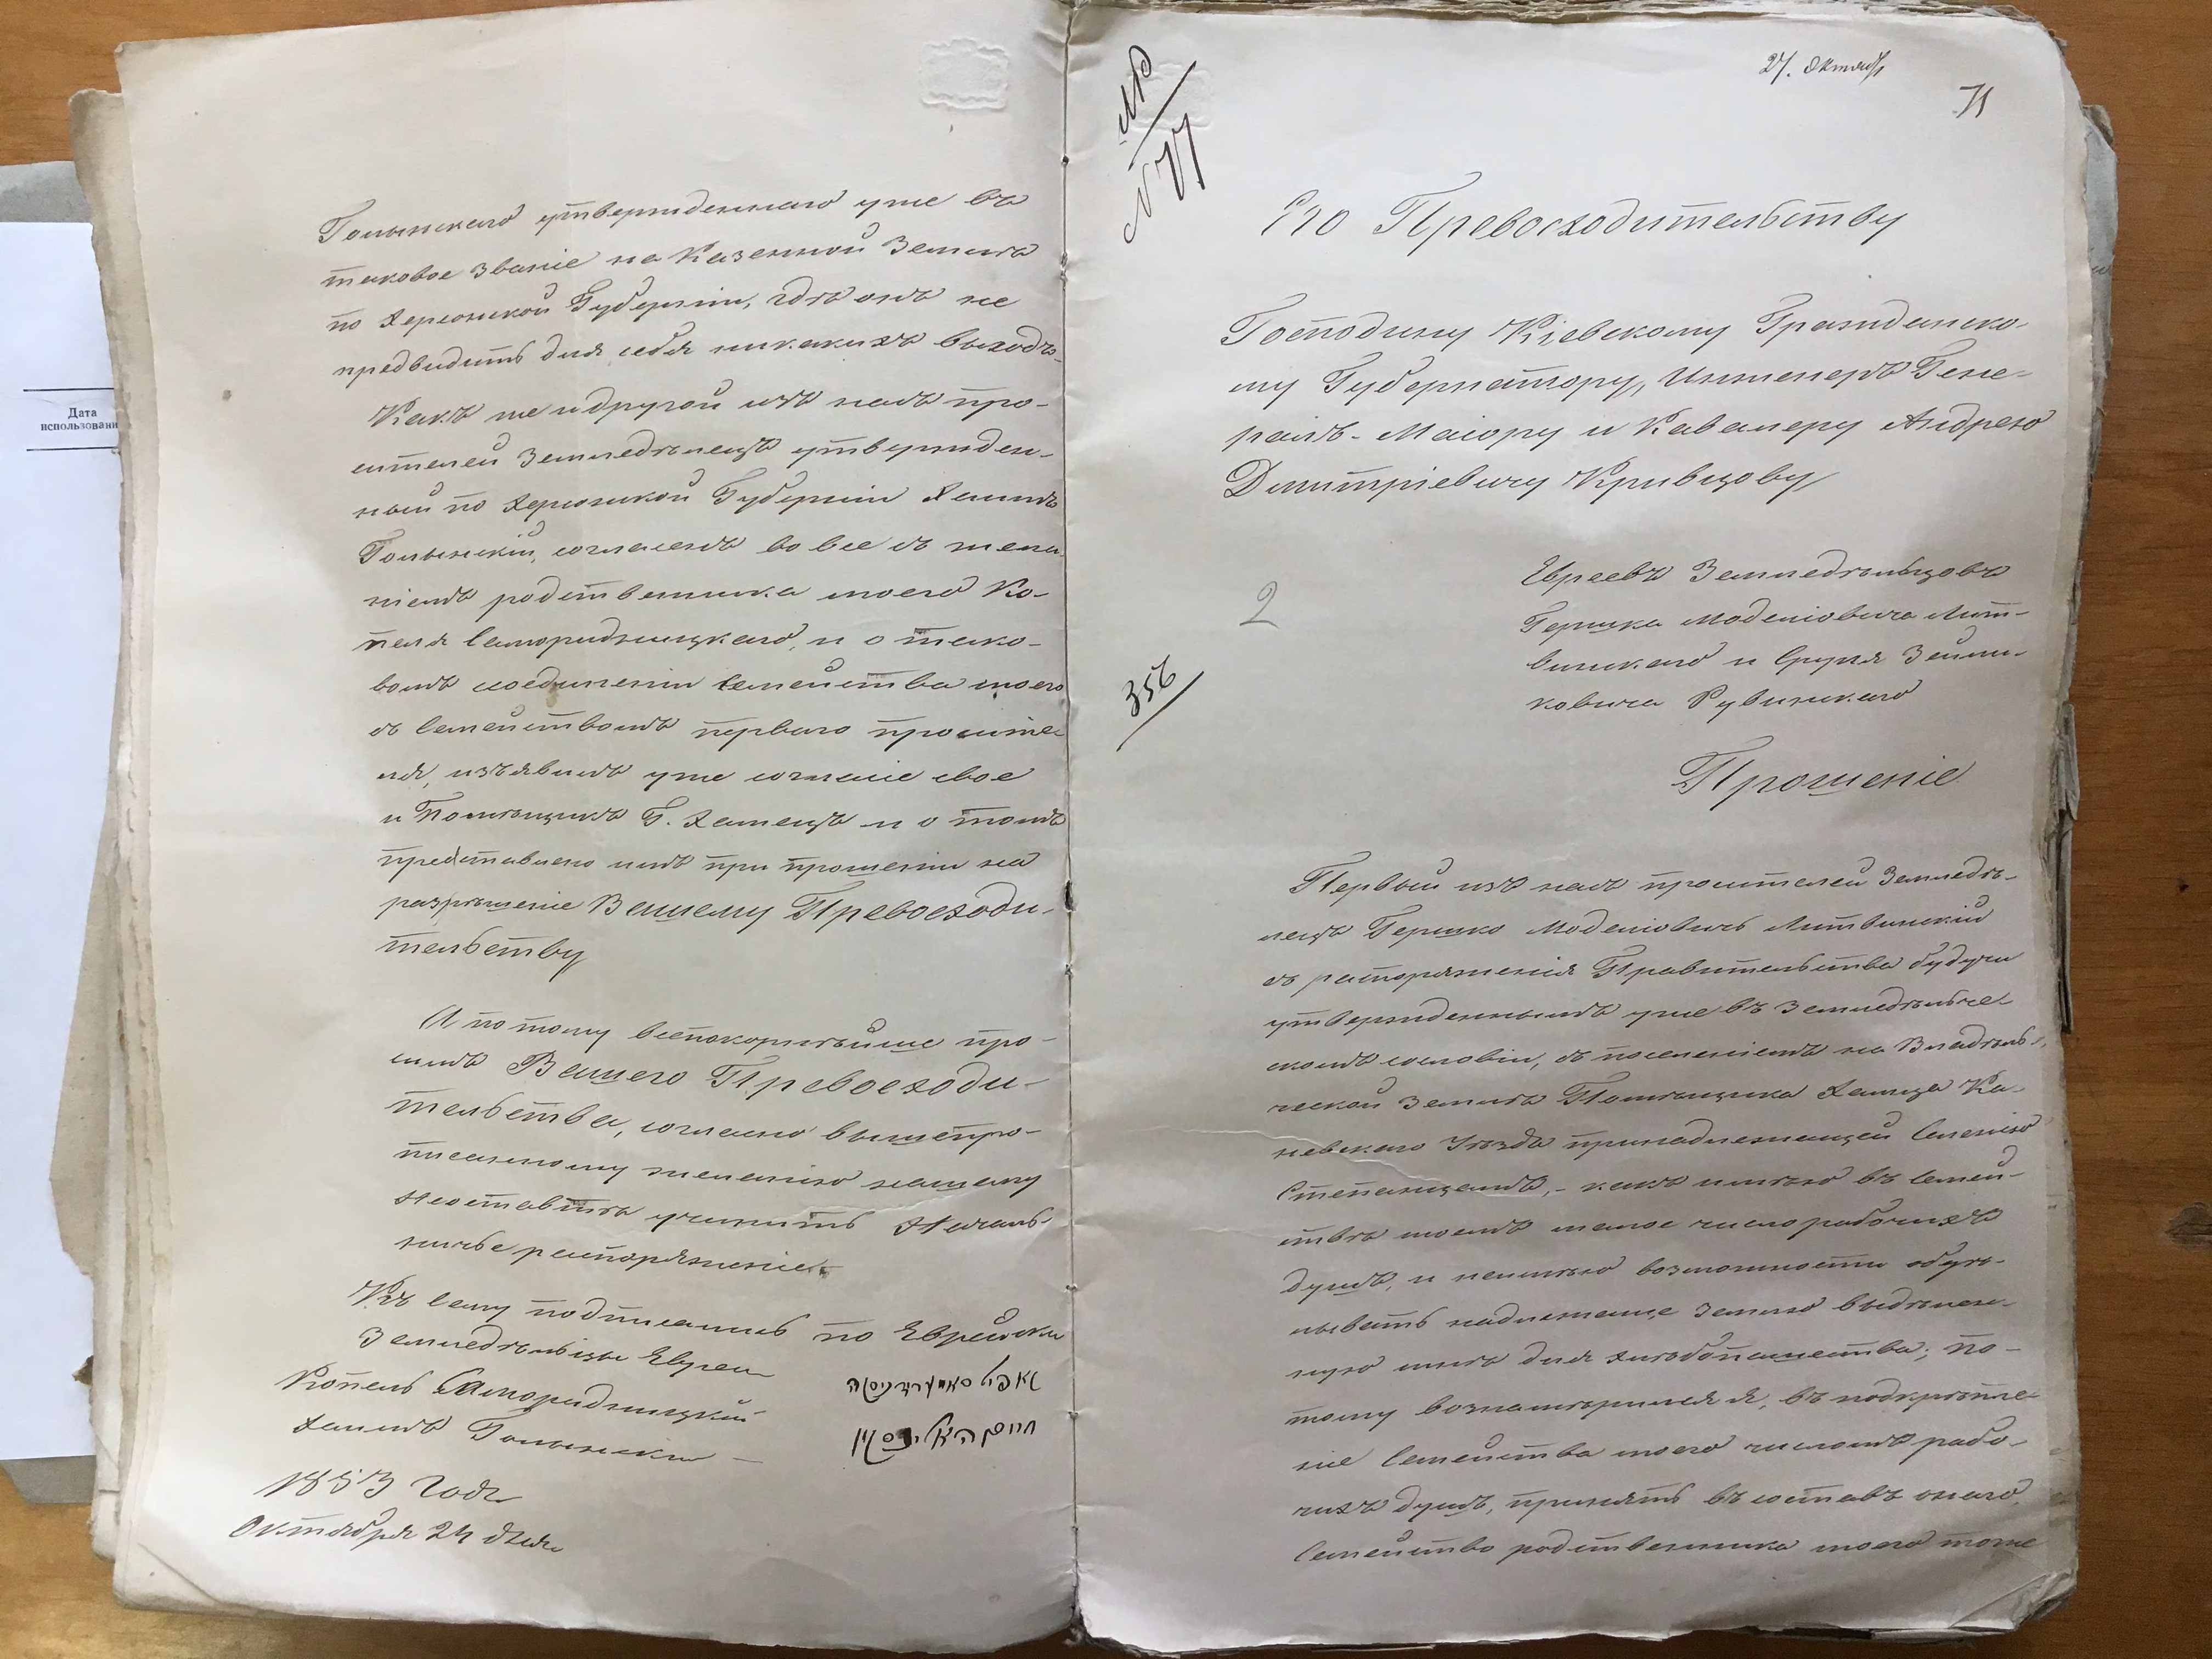 Дата
использовани
Голынскаго утвержденнаго уже въ
таковое званіе на Казенной Землѣ
по Херсонской Губерніи, гдѣ онъ не
предвидитъ для себя никакихъ выходъ-
Какъ же и другой изъ насъ про-
сителей Земледѣлецъ утвержден-
ный по Херсонской Губерніи Хаимъ
Голынскій, согласенъ во все съ жела-
ніемъ родственника моего Ко-
пеля Саморидницкаго, и о тако-
вомъ соединеніи Семейства моего
съ Семействомъ перваго просите-
ля, изъявилъ уже согласіе свое
и Помѣщикъ Г. Хамецъ и о томъ
представлено имъ при прошеніи на
разрѣшеніе Вашему Превосходи-
тельству
А потому всепокорнѣйше про-
симъ Вашего Превосходи-
тельства, согласно вышепро-
писанному желанію нашему
Неоставить учинить Началь-
ничье распоряженіе
Къ сему подписались по Еврейски
Земледѣльцы Евреи
Копель Саморидницкій
Хаимъ Голынскій
1853 года
Октября 24 дня
27. Октяб
71
№ 77
356
2
Его Превосходительству
Господину Кіевскому Гражданско-
му Губернатору, Инженеръ Гене-
ралъ-Маіору и Кавалеру Андрею
Дмитріевичу Кривцову
Евреевъ Земледѣльцовъ
Гершка Моделіовича Лит-
винскаго и Сруля Зейли-
ковича Рувинскаго
Прошеніе
Первый изъ насъ просителей Земледѣ-
лецъ Гершко Моделіовичъ Литвинскій
съ распоряженія Правительства будучи
утвержденнымъ уже въ Земледѣльчес-
комъ сословіи, съ поселеніемъ на Владѣль-
ческой Землѣ Помѣщика Хамца Ка-
невскаго Уѣзда принадлежащей Селенію
Степанцамъ, - какъ имѣю въ Семей-
ствѣ моемъ малое число рабочихъ
душъ, и неимѣю возможности обуро-
пывать надлежаще Землю выдѣлен-
ную мнѣ для хлѣбопашества; по-
тому вознамѣрился я, въ подкрѣпле-
ніе Семейства моего числомъ рабо-
чихъ душъ, принять въ составъ онаго,
Семейство родственника моего тоже